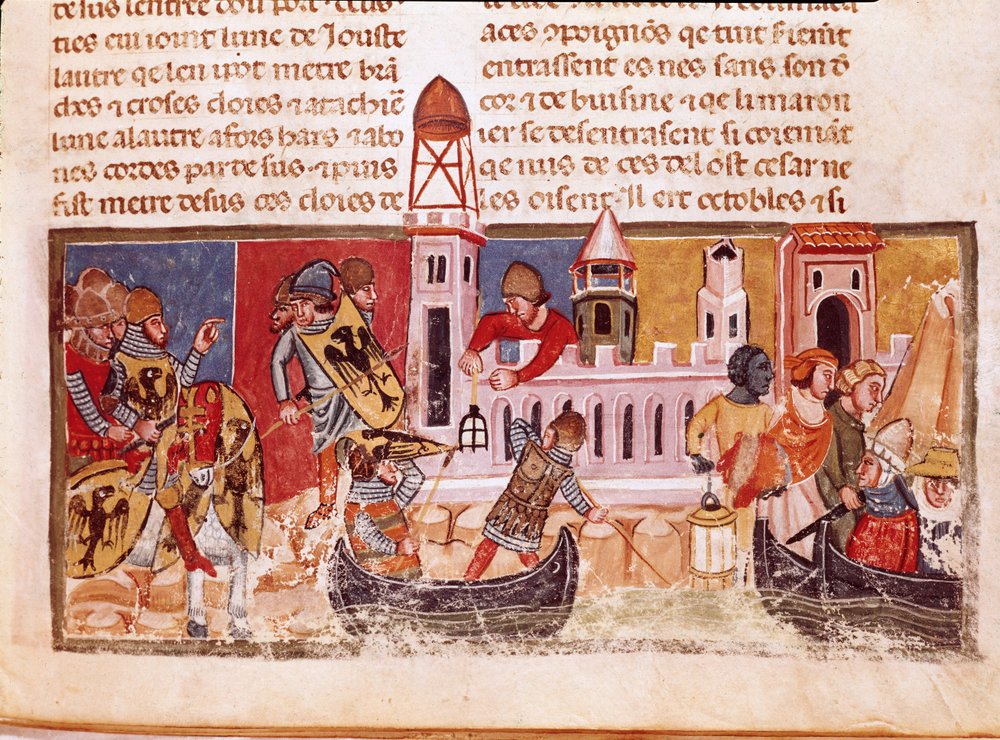 ties cui iouit lune de Jouste
lautre qe len vot metre brā
ches ⁊ croses cloies ⁊ atachiē
lune alautre afors hars ⁊ abo
nes cordes par desus ⁊ puis
fist metre desus ces cloies de
aces ⁊ poignōs qe tuit bienīt
entrassent es nes sans son d̄
cor ⁊ de buisine ⁊ qe li maron
ier se desentrasent si coiemāt
qe nus de ces del ost cesar ne
les oisent· Il ert octobles ⁊ si